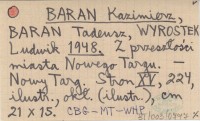 BARAN Kazimierz,
BARAN Tadeusz, WYROSTEK
Ludwik 1948. Z przeszłości
miasta Nowego Targu. —
Nowy Targ. Stron XV, 224,
ilustr., okł. (ilustr.), cm
21 x 15. CBG-MT-WHP